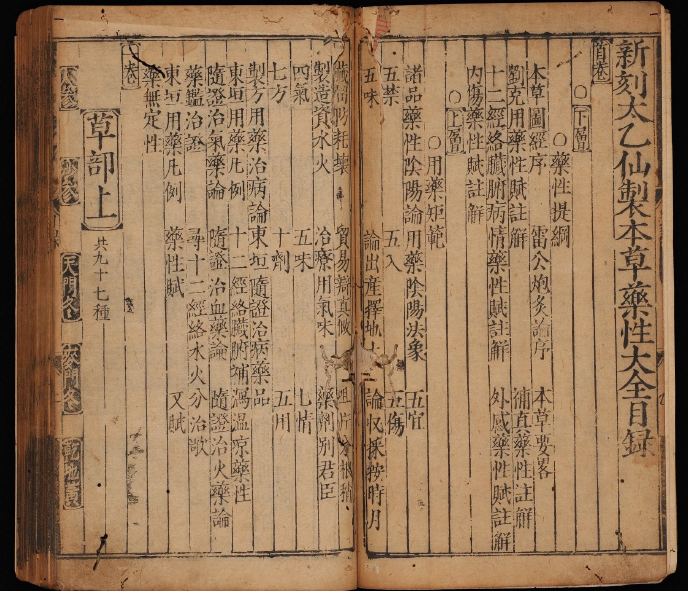 新刻太乙仙製本草藥性大全目録
首卷
○下層
○藥性提綱
本草圖經序 雷公炮炙論序 本草要畧
劉克用藥性賦註解 補真藥性註解
十二經絡臟腑病情藥性賦註解 外感藥性賦註解
内傷藥性賦註解
○上層
○用藥矩範
諸品藥性陰陽論 用藥陰陽法象 五宜
五禁 五入 五傷
五味 論出産擇地土 論收採按時月
藏留防耗壞 貿易辯真假 咀片分根稍
製造資水火 治療用氣味 藥劑別君臣
四氣 五味 七情
七方 十劑 五用
製方用藥治病論 東垣隨證治病藥品
東垣用藥凡例 十二經絡臟腑補瀉温凉藥性
隨證治氣藥論 隨證治血藥論 隨證治火藥論
藥鑑治證 尋十二經絡水火分治歌
東垣用藥凡例 藥性賦 又賦
藥無定性
一卷
草部上 共九十七種
人參 沙參 天門冬 麥門冬 乾地黃